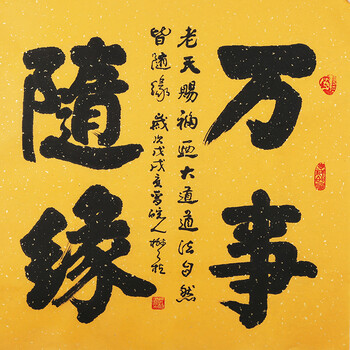 万事
隨缘
老天赐福近大道道法自然
皆随缘 岁次戊戌